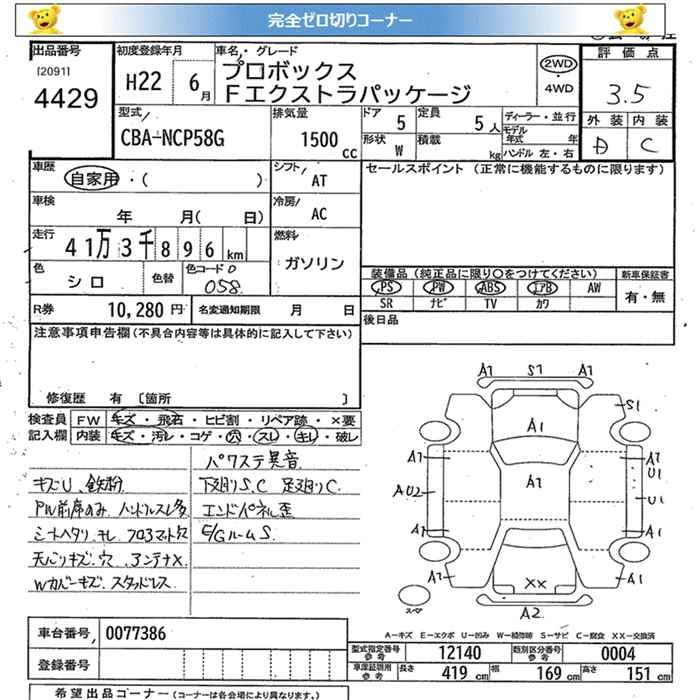 完全ゼロ切りコーナー
出品番号 初度登録年月 車名・グレード 評価点
[2091] 4429 H22 6月 プロボックス 2WD 3.5
Fエクストラパッケージ ・4WD
型式 排気量 ドア 定員 ディーラー・並行 外装 内装
CBA-NCP58G 1500cc 5 5人 モデル年式 年 D C
形状 W 積載 kg ハンドル 左・右
車歴 自家用・( ) シフト AT セールスポイント (正常に機能するものに限ります)
車検 年 月( 日) 冷房 AC
走行 41万3千896km 燃料 ガソリン
色 シロ 色替 色コードNo 058 装備品(純正品に限り〇をつけてください) 新車保証書
PS PW ABS エアB AW 有・無
SR ナビ TV カワ
R券 10,280円 名変通知期限 月 日 後日品
注意事項申告欄(不具合内容等は具体的に記入して下さい)
修復歴 有 [箇所 ]
検査員 FW キズ・飛石・ヒビ割・リペア跡・×要
記入欄 内装 キズ・汚レ・コゲ・穴・スレ・キレ・破レ
パワステ異音
キズU、鉄粉 下廻りS、C 足廻りC、
P/W前席のみ ハンドルスレ多 エンドパネル歪
シートヘタリ、キレ フロアマット欠 E/GルームS
天バリキズ、穴 アンテナX
Wカバーキズ、スタッドレス
A1 S7 A1
S1
A1
A1 A1 A1
U1
AU2 U1
A1 A1
A1 XX A1
スペア A2
A-キズ E-エクボ U-凹み W-補修跡 S-サビ C-腐食 XX-交換済
車台番号 0077386
型式指定番号 参考 12140 類別区分番号 参考 0004
登録番号 車庫証明用 参考 長さ 419cm 幅 169cm 高さ 151cm
希望出品コーナー (コーナーは各会場により異なります。)